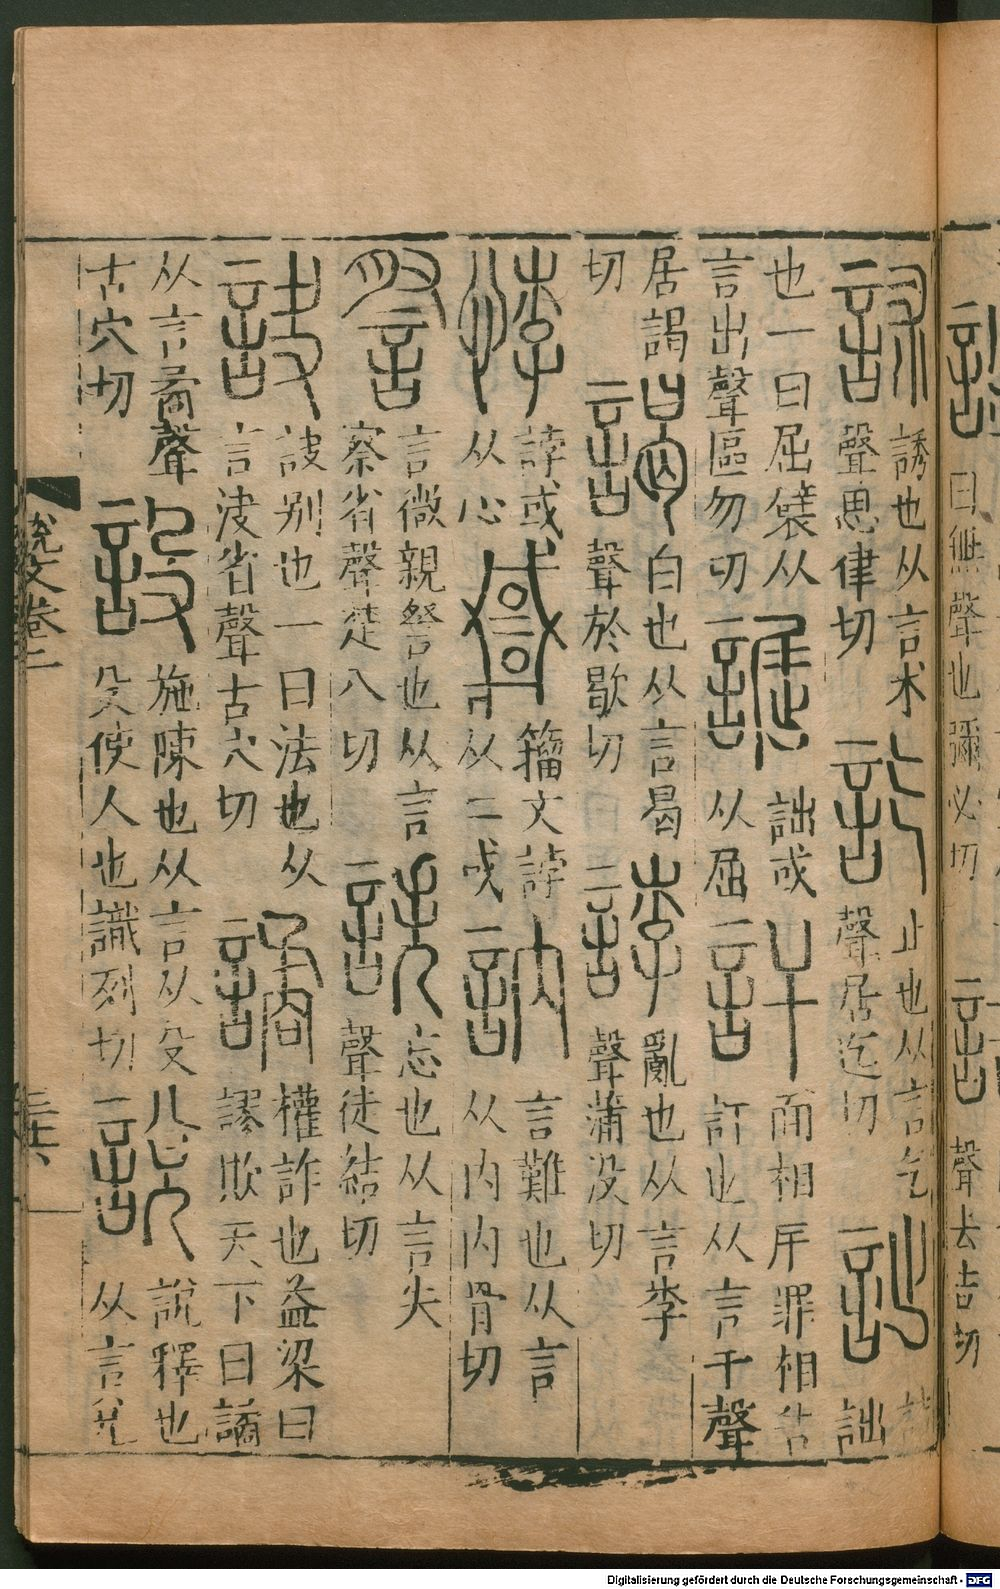 曰無聲也彌必切
聲去吉切
訹誘也从言术聲思律切訖止也从言气聲居迄切詘詰詘
也一曰屈襞从言出聲區勿切䛼詘或从屈訐面相㡿罪相告訐也从言干聲
居謁切謁白也从言曷聲於歇切誖亂也从言孛聲蒲没切
悖誖或从心籀文誖从二或訥言難也从言从内内骨切
詧言微親詧也从言察省聲楚八切詄忘也从言失聲徒結切
訣訣别也一曰法也从言决省聲古穴切譎權詐也益梁曰謬欺天下曰譎
从言矞聲古穴切設施陳也从言从殳殳使人也識列切說說釋也从言兌
說文卷二
Digitalisierung gefördert durch die Deutsche Forschungsgemeinschaft - DFG